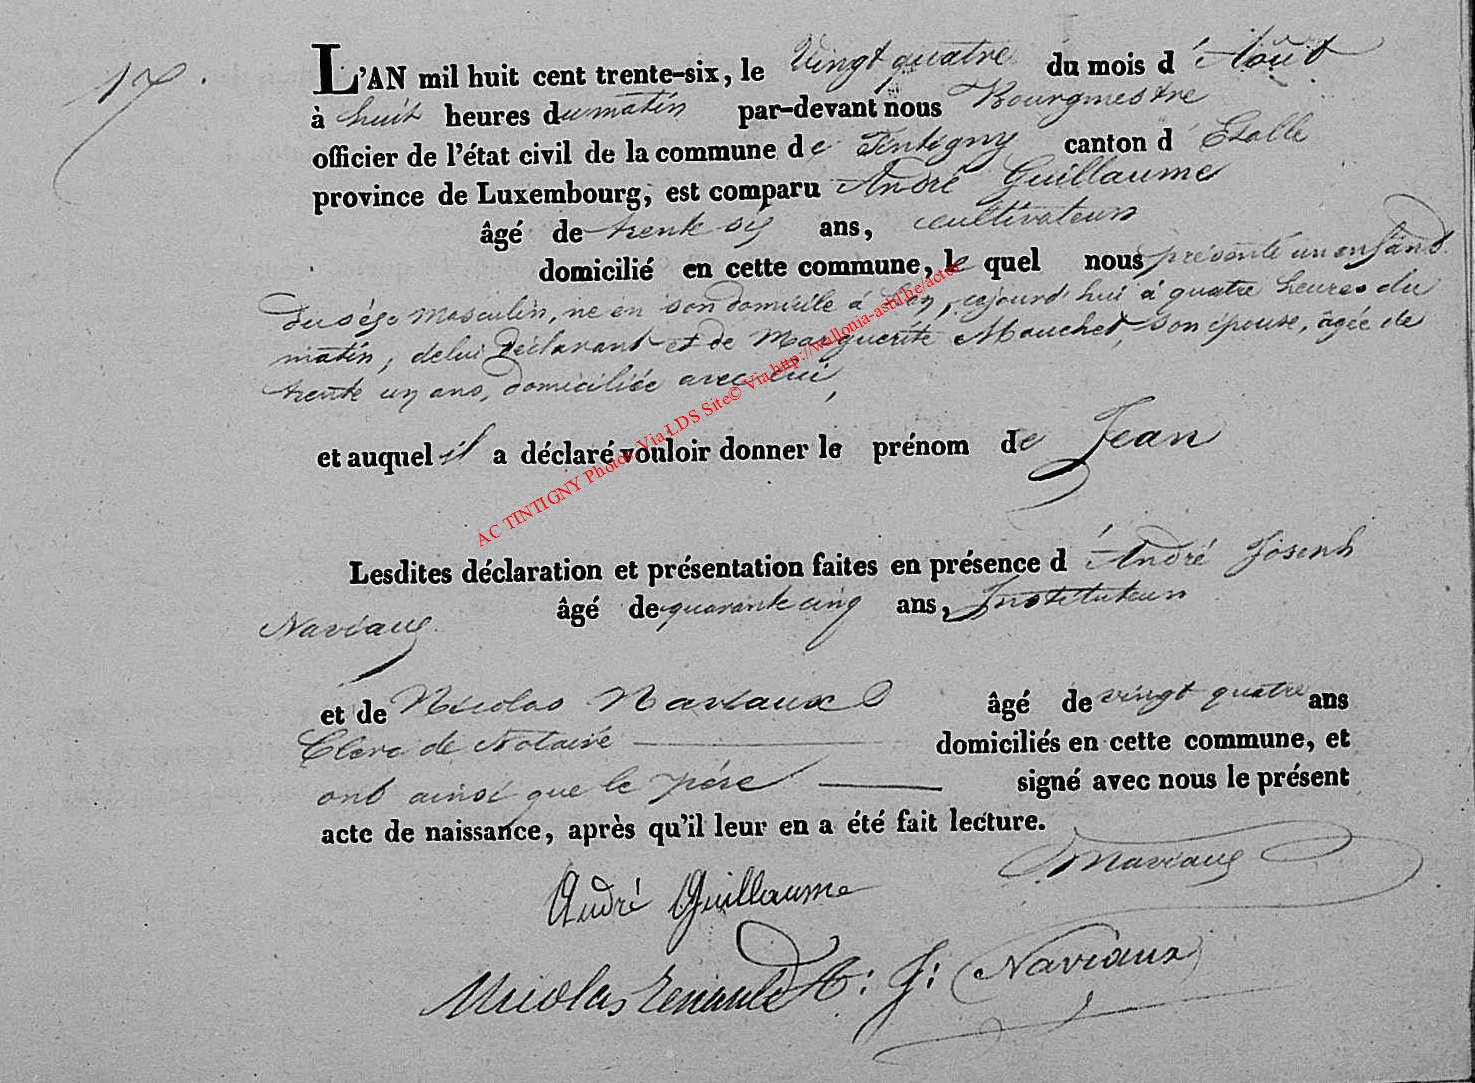 17.
L'AN mil huit cent trente-six, le Vingt quatre du mois d'Août
à huit heures du matin par-devant nous Bourgmestre
officier de l'état civil de la commune de Tintigny canton d'Etalle
province de Luxembourg, est comparu André Guillaume
âgé de trente six ans, cultivateur
domicilié en cette commune, le quel nous présenté un enfant
du sexe masculin, né en son domicile à han, cejourd'hui à quatre heures du
matin, de lui Déclarant et de Marguerite Mouchet, son épouse, âgée de
trente un ans, domiciliée avec lui,
et auquel il a déclaré vouloir donner le prénom de Jean
Lesdites déclaration et présentation faites en présence d'André Joseph
Naviaux âgé de quarante cinq ans, Instituteur
et de Nicolas Naviaux âgé de vingt quatre ans
Clerc de Notaire domiciliés en cette commune, et
ont ainsi que le père signé avec nous le présent
acte de naissance, après qu'il leur en a été fait lecture.
Naviaux
André Guillaume
Nicolas A: J: Naviaux
AC TINTIGNY Photos Via LDS Site© Via http://wallonia-asbl.be/actes/